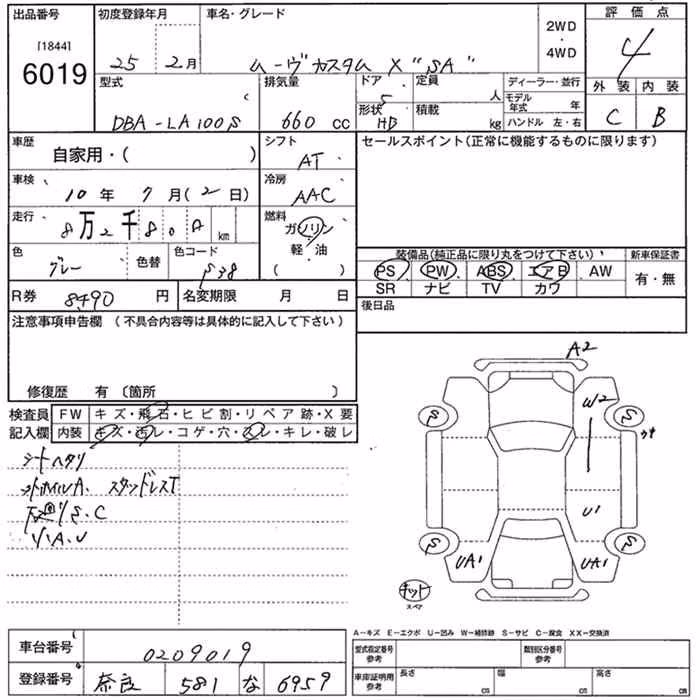 出品番号 初度登録年月 車名・グレード 評価点
[1844]
6019
25 2月 ムーヴカスタム X "SA"
2WD
・
4WD
4
型式 排気量 ドア 定員 ディーラー・並行 外装 内装
DBA-LA100S 660 CC 5 人 モデル年式 年 C B
形状 HB 積載 kg ハンドル 左・右
車歴 自家用・( ) シフト AT セールスポイント(正常に機能するものに限ります)
車検 10年 7月(2日) 冷房 AAC
走行 8万2千80 km 燃料 ガソリン・軽・油 ( )
色 グレー 色替 色コード S38
装備品(純正品に限り丸をつけて下さい) 新車保証書
PS PW ABS エアB AW 有・無
SR ナビ TV カワ
R券 8490 円 名変期限 月 日 後日品
注意事項申告欄(不具合内容等は具体的に記入して下さい)
修復歴 有〔箇所 〕
A2
検査員 FW キズ・飛石・ヒビ割・リペア跡・X要
記入欄 内装 キズ・汚レ・コゲ・穴・スレ・キレ・破レ
W2
S S
シートヘタリ
スタッドレスT
下廻りS、C
U1
S S
UA1 UA1
キット
スペア
A-キズ E-エクボ U-凹み W-補修跡 S-サビ C-腐食 XX-交換済
車台番号 0209019 型式指定番号 参考 類別区分番号 参考
登録番号 奈良 581 な 6959 車庫証明用 参考 長さ cm 幅 cm 高さ cm